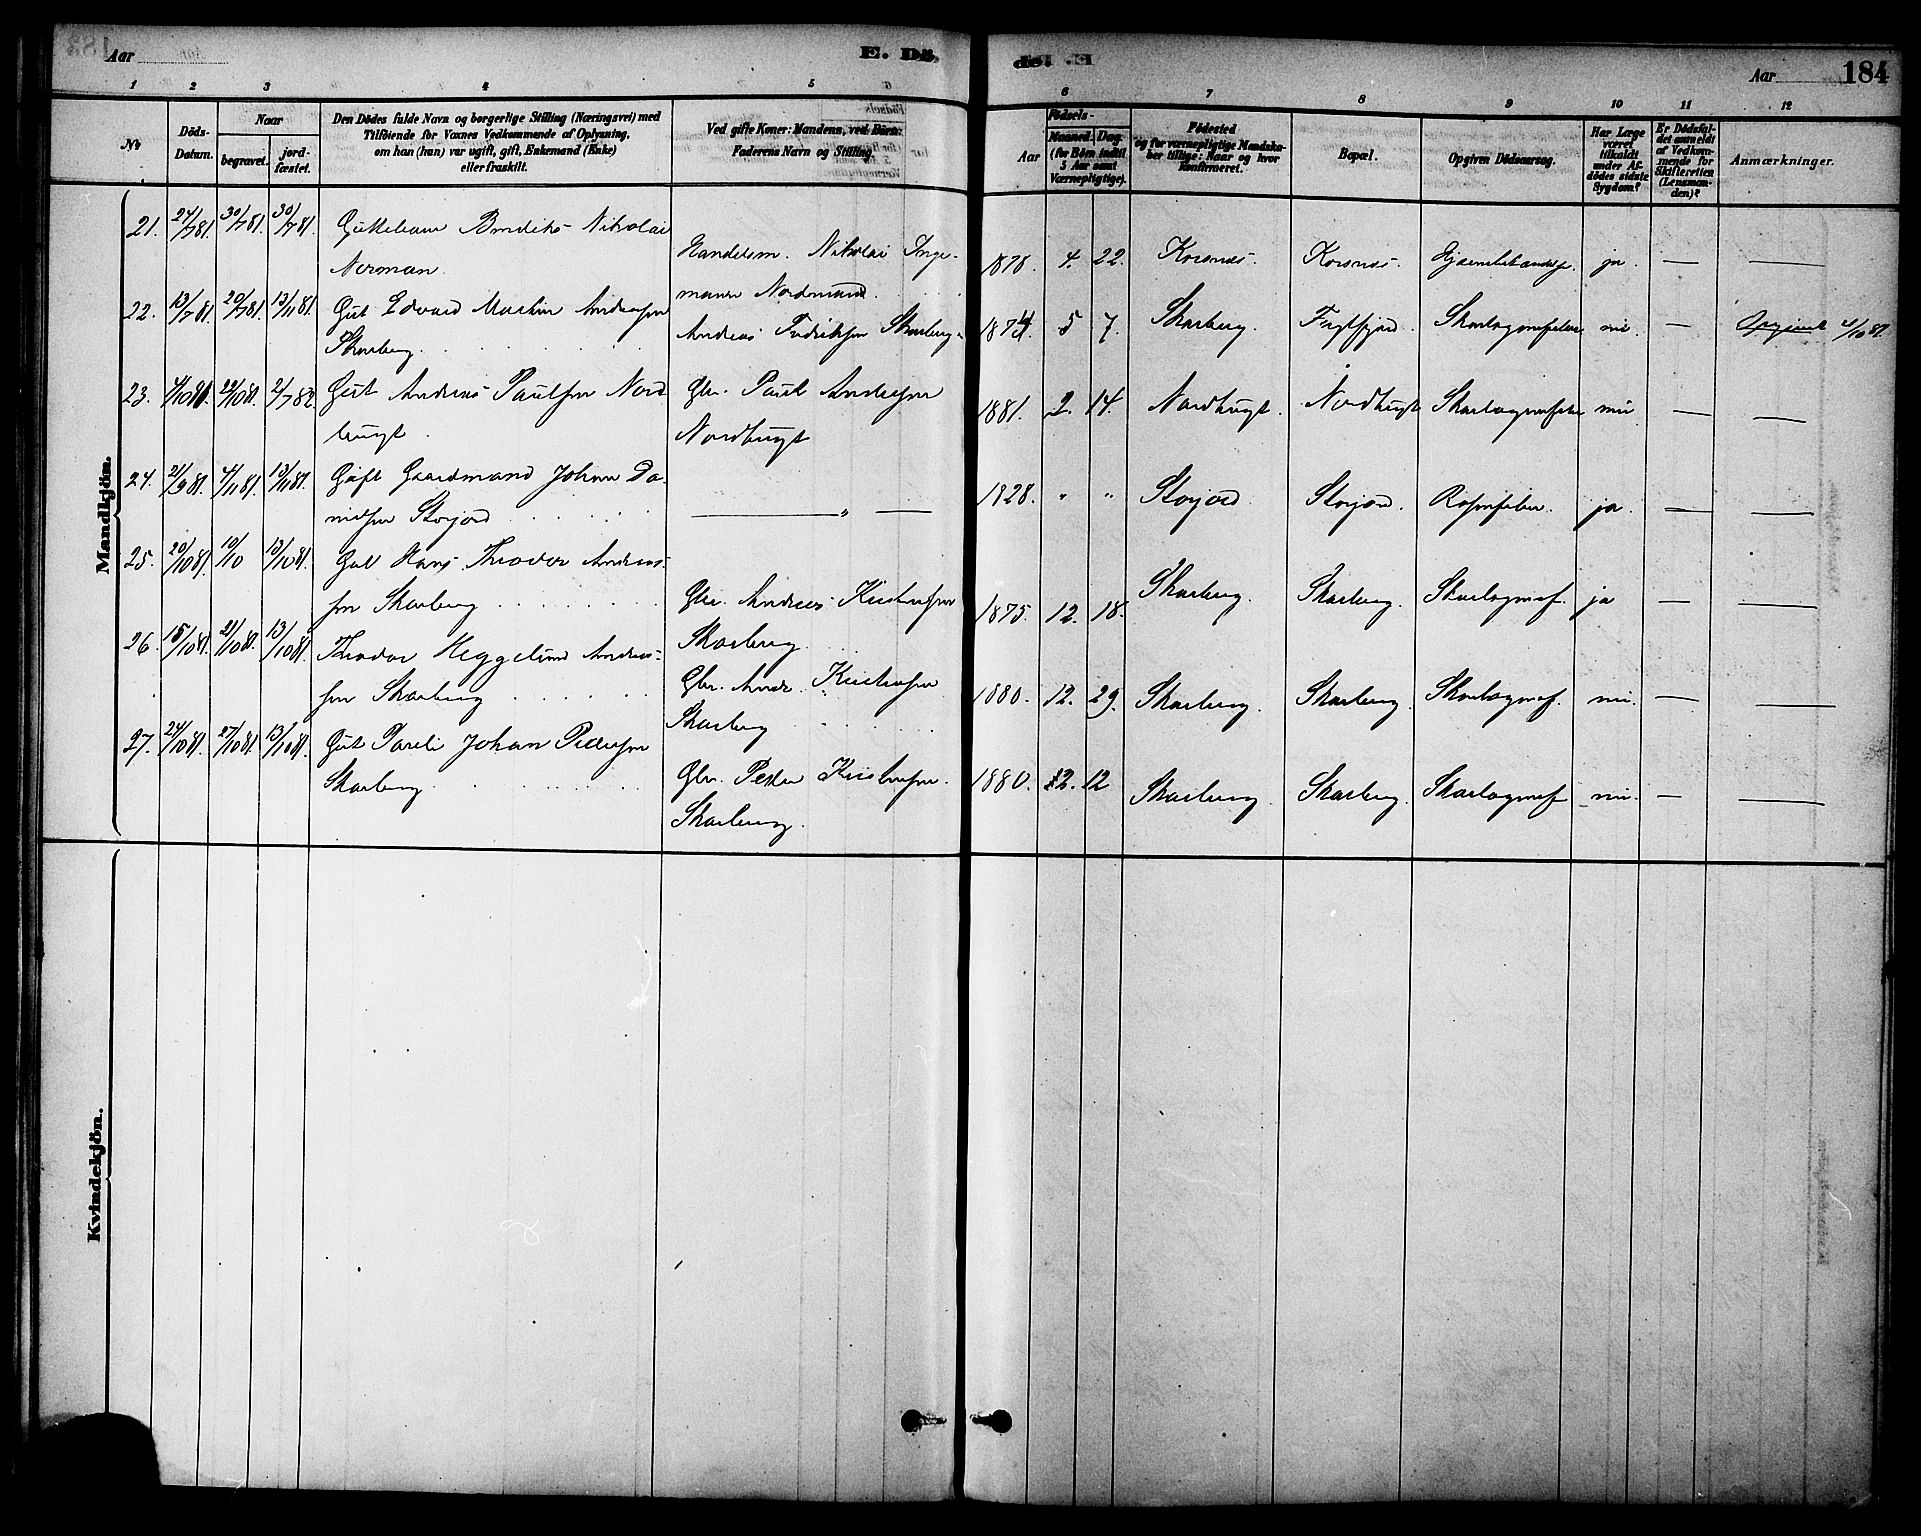 Aar
E. Dö
de. E
Aar
184
1 2 3 4 5 6
6 7 8 9 10 11 12
No
Döds-Datum.
Naar
begravet.
jord-fæstet.
Den Dödes fulde Navn og borgerlige Stilling (Næringsvei) med
Tilföiende for Voxnes Vedkommende af Oplysning,
om han (hun) var ugift, gift, Enkemand (Enke)
eller fraskilt.
Ved gifte Koner: Mandens, ved Börn:
Faderens Navn og Stilling.
Födsels-
Aar
Maaned.
Dag
(for Börn indtil
5 Aar samt
Værnepligtige).
Födested
og for værnepligtige Mandska-
ber tillige: Naar og hvor
konfirmeret.
Bopæl.
Opgiven Dödsaarsag.
Har Læge
været
tilkaldt
under Af-
dödes sidste
Sygdom?
Er Dödsfal-
det anmeldt
af Vedkom-
mende for
Skifteretten
(Lensman-
den)?
Anmærkninger.
Mandkjön.
21. 24/7 81. 30/7 81. 30/7 81. Nikolai
Norman Handelsm. Nikolai Inge-
mann Nordmand 1878. 4. 22. Korsnes. Korsnes. ja. — —
22. 13/7 81. 20/7 81. 13/11 81. Gut Edvard Martin Andreassen
Skarberg. Andreas Fredriksen Skarberg. 5 7. Skarberg. nei. — 4/10 81.
23. 22/10 81. 2/7 82. Gut Andreas Paulsen Nord
bugt. Gbr. Paul Andersen
Nordbugt 1881. 2. 14. Nordbugt. Nordbugt nei — —
24. 21/9 81. 4/11 81. 13/11 81. Gift Gaardmand Johan Da-
nielsen Storjord — " — 1828. " " Storjord. Storjord. Rosenfeber. ja. — —
25. 20/10 81. 13/10 81. Hans Theodor Andreas-
sen Skarberg Gbr. Andreas Kristensen
Skarberg. 1875. 12. 18. Skarberg. Skarberg. Skarlagensf. ja — —
26. 21/10 81. 13/10 81. Theodor Heggelund Andreas-
sen Skarberg Gbr. Andr. Kristensen
Skarberg 1880. 12. 29. Skarberg. Skarberg. Skarlagensf. nei. — —
27. 24/10 81. 27/10 81. 13/10 81. Gut Johan Pedersen
Skarberg. Gbr. Peder Kristensen.
Skarberg. 1880. 12. 12 Skarberg. Skarberg. Skarlagensf nei. — —
Kvindekjön.